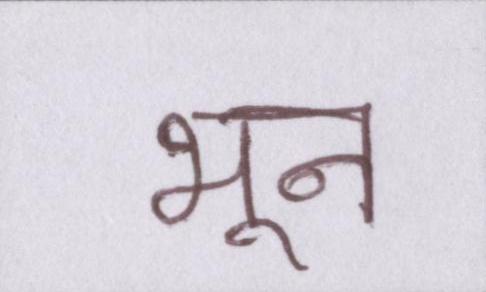 भून